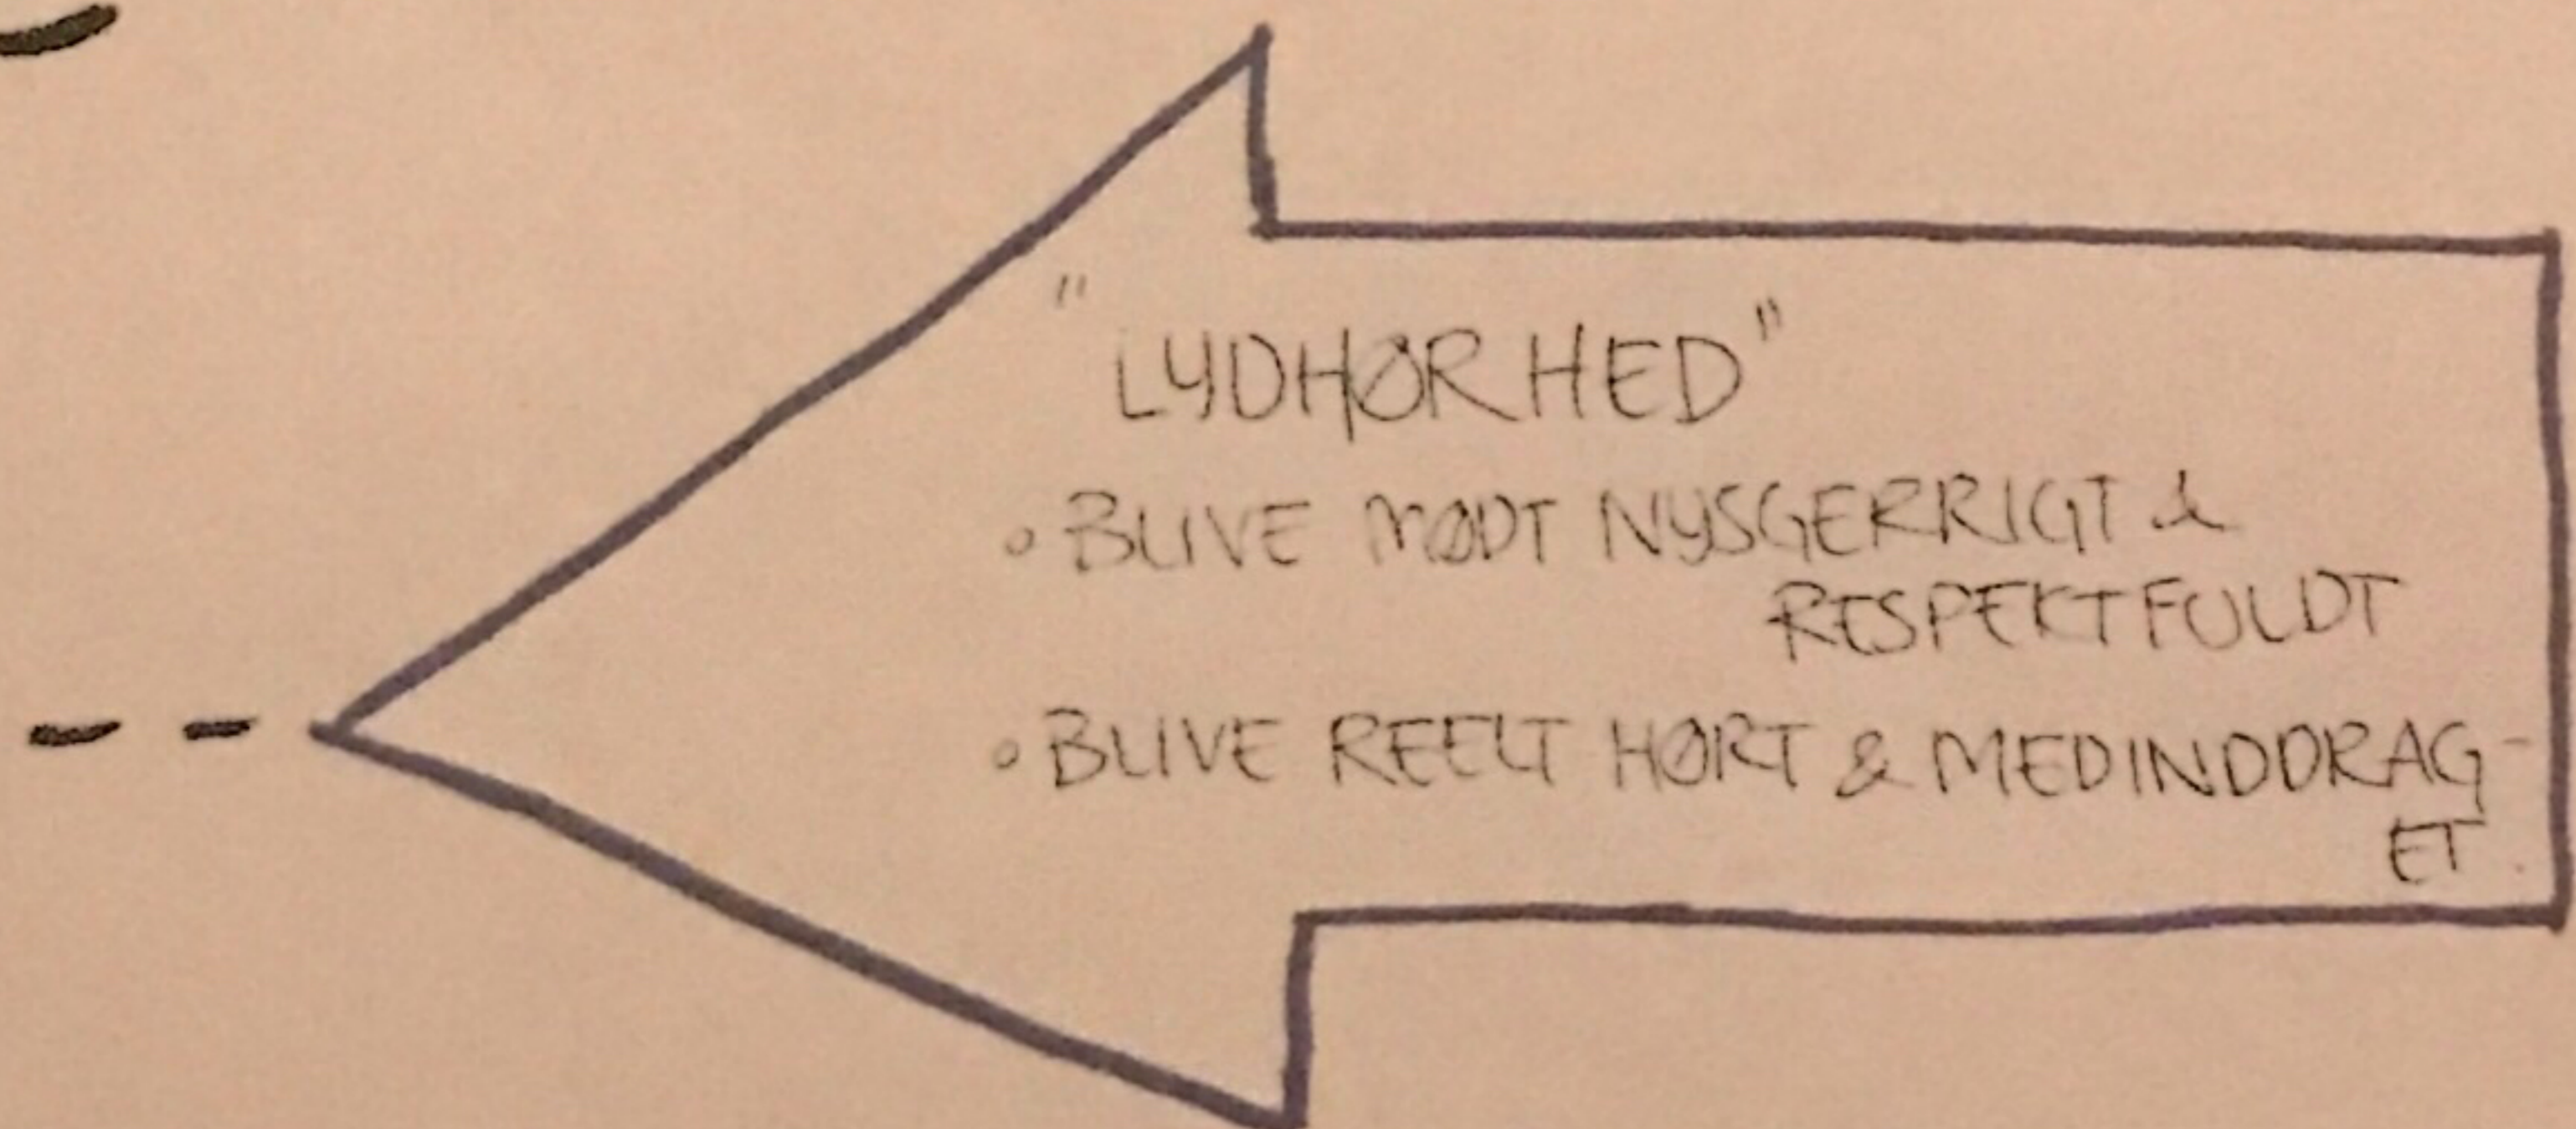 "LYDHØRHED"
• BLIVE MØDT NYSGERRIGT &
RESPEKTFULDT
• BLIVE REELT HØRT & MEDINDDRAG-
ET.